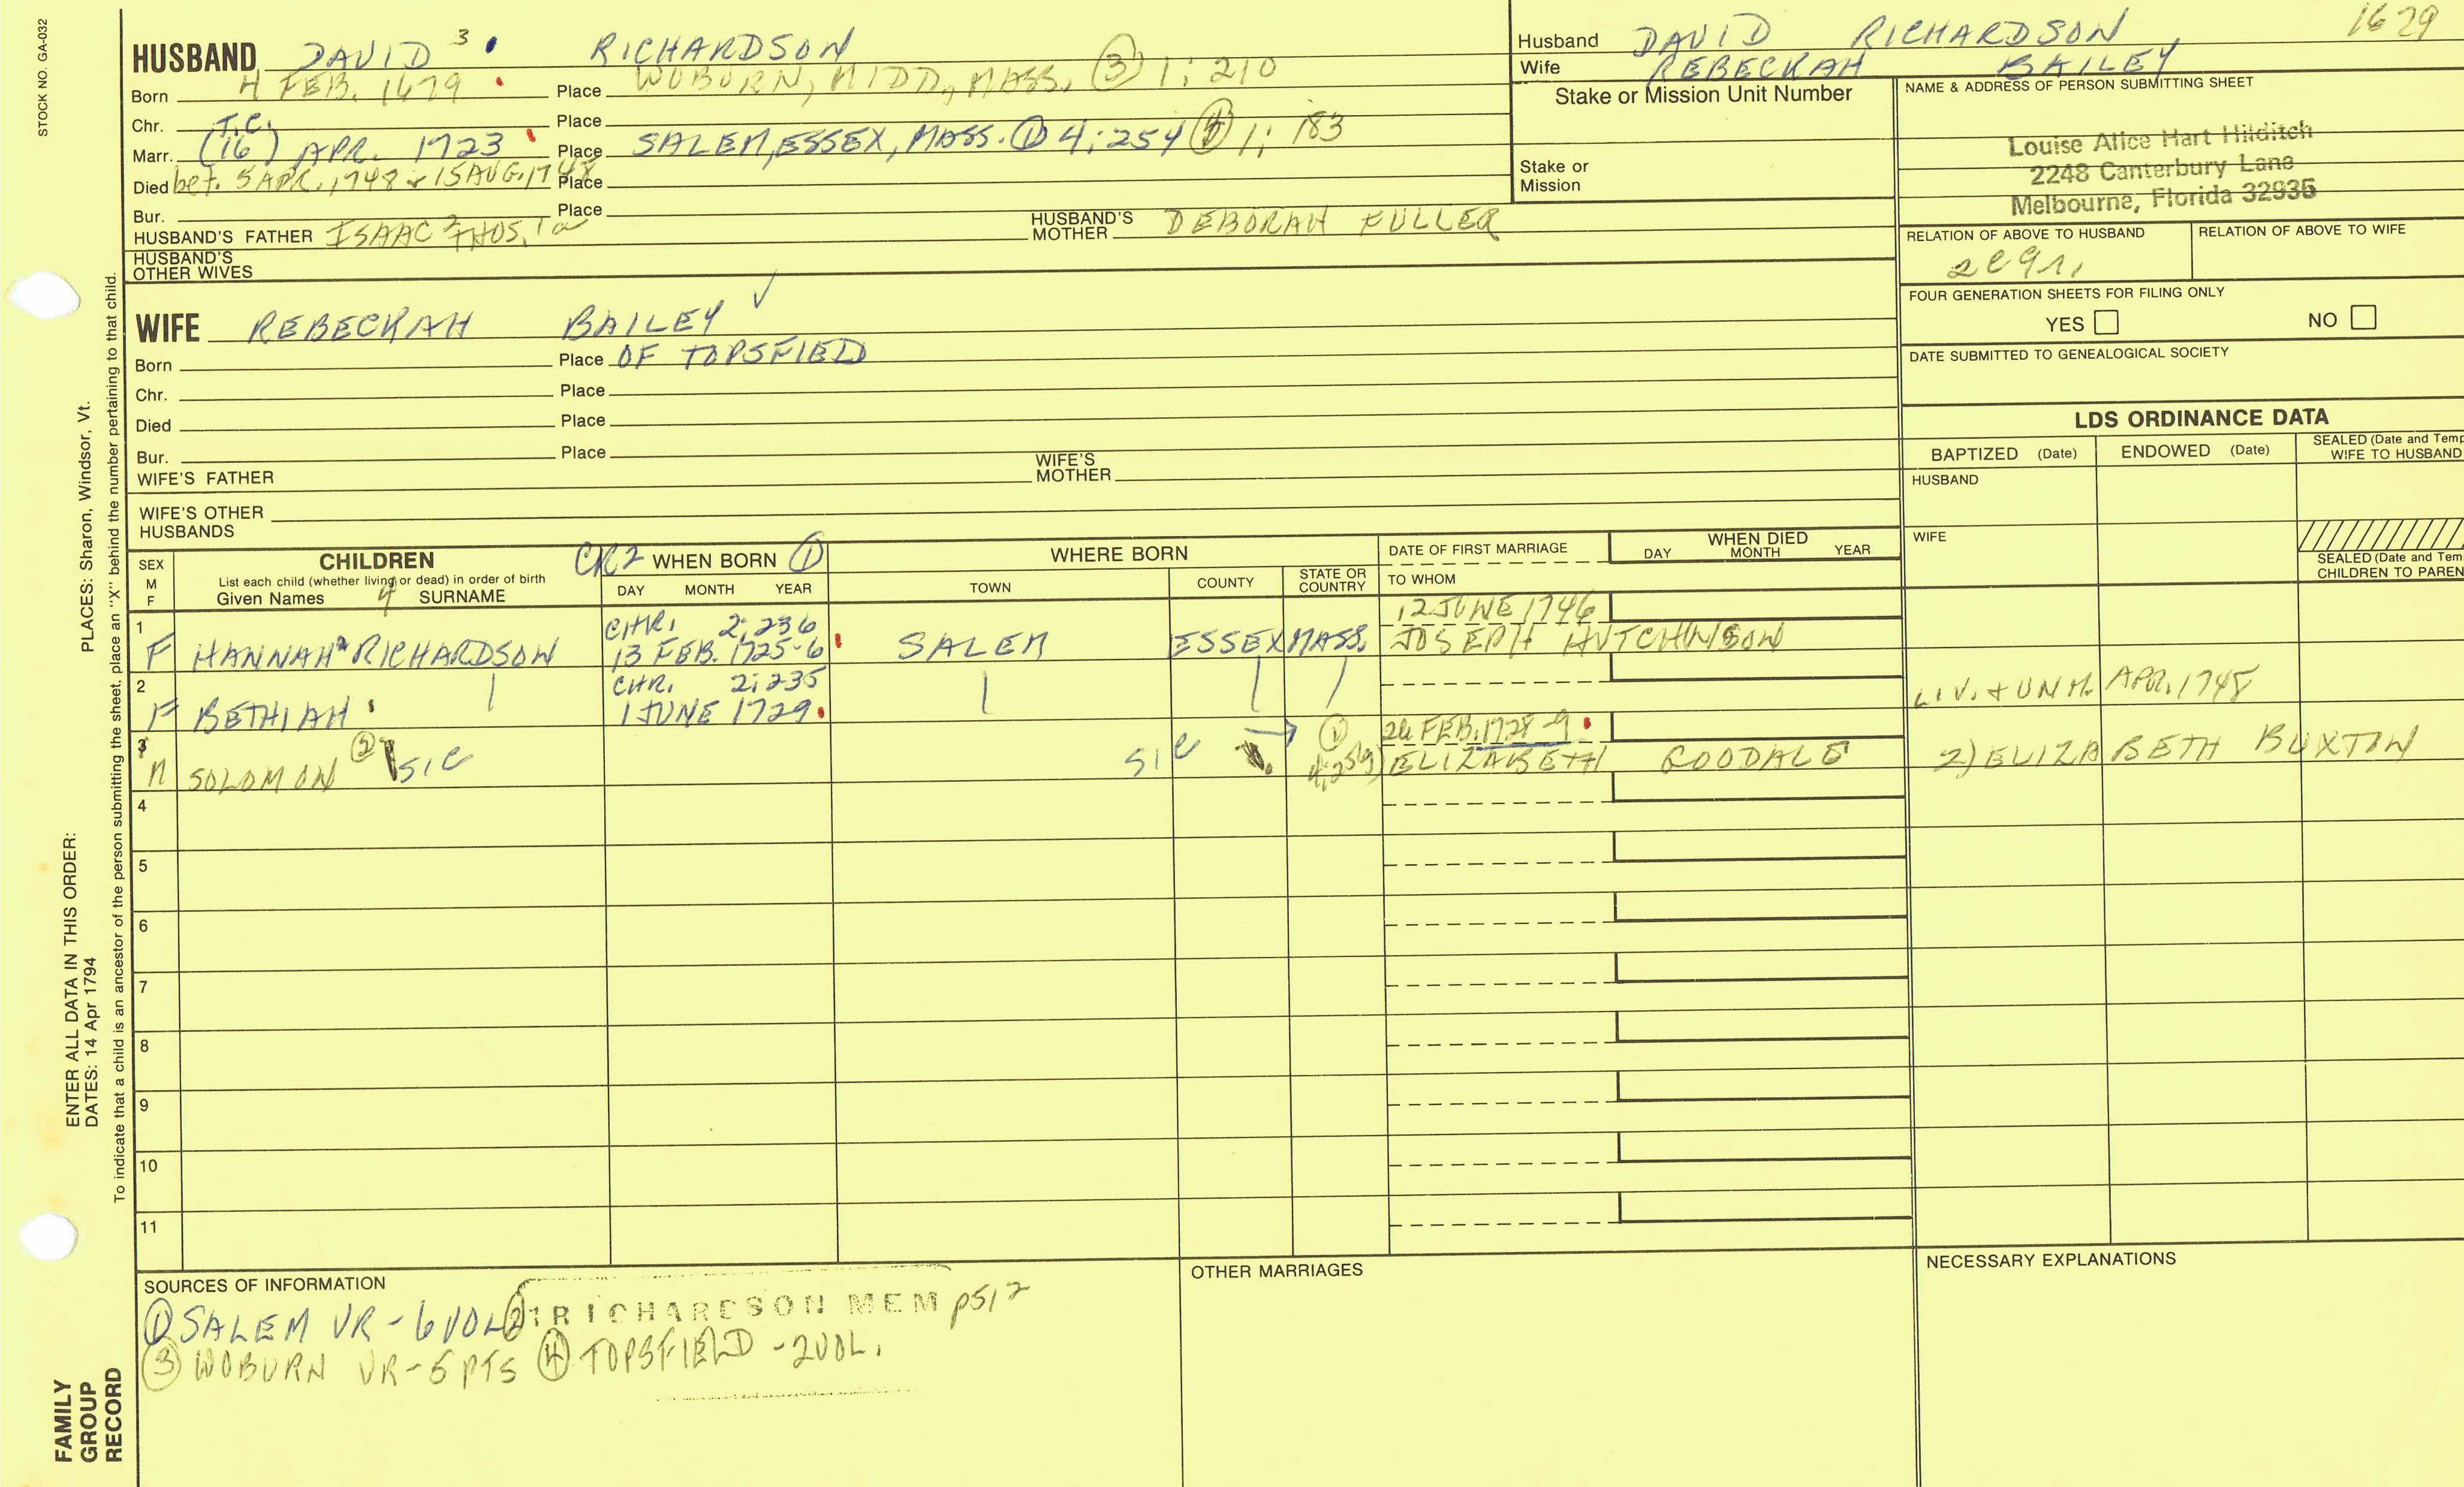 STOCK NO. GA-032
HUSBAND DAVID 3 RICHARDSON
Born 4 FEB. 1679 Place WOBURN, MIDD., MASS. (3) 1; 210
Chr. Place
Marr. (16) (T.C.) APR. 1723 Place SALEM, ESSEX, MASS. (1) 4; 254 (4) 1; 183
Died bet. 5 APR. 1748 & 15 AUG. 1748 Place
Bur. Place
HUSBAND'S FATHER ISAAC 2 THOS. HUSBAND'S MOTHER DEBORAH FULLER
HUSBAND'S OTHER WIVES
WIFE REBECKAH BAILEY ✓
Born Place OF TOPSFIELD
Chr. Place
Died Place
Bur. Place
WIFE'S FATHER WIFE'S MOTHER
WIFE'S OTHER HUSBANDS
Husband DAVID RICHARDSON 1679
Wife REBECKAH BAILEY
Stake or Mission Unit Number
Stake or Mission
NAME & ADDRESS OF PERSON SUBMITTING SHEET
Louise Alice Hart Hilditch
2248 Canterbury Lane
Melbourne, Florida 32935
RELATION OF ABOVE TO HUSBAND RELATION OF ABOVE TO WIFE
FOUR GENERATION SHEETS FOR FILING ONLY
YES NO
DATE SUBMITTED TO GENEALOGICAL SOCIETY
LDS ORDINANCE DATA
BAPTIZED (Date) ENDOWED (Date) SEALED (Date and Temp WIFE TO HUSBAND
HUSBAND
WIFE
SEALED (Date and Tem CHILDREN TO PAREN
SEX M F
CHILDREN
List each child (whether living or dead) in order of birth
Given Names 4 SURNAME
CR2 WHEN BORN (1)
DAY MONTH YEAR
WHERE BORN
TOWN COUNTY STATE OR COUNTRY
DATE OF FIRST MARRIAGE
TO WHOM
WHEN DIED
DAY MONTH YEAR
1 CHR. 2; 236 12 JUNE 1746
F HANNAH RICHARDSON 13 FEB. 1725-6 SALEM ESSEX MASS. JOSEPH HUTCHINSON
2 CHR. 2; 235 LIV. & UNM. APR. 1748
F BETHIAH 1 JUNE 1729
3 (2) SIC SIC (1) 26 FEB. 1728-9
M SOLOMON ELIZABETH GOODALE 2) ELIZABETH BUXTON
4
5
6
7
8
9
10
11
SOURCES OF INFORMATION
(1) SALEM VR - 6 VOL (2) RICHARDSON MEM p512
(3) WOBURN VR - 5 PTS (4) TOPSFIELD - 2 VOL.
OTHER MARRIAGES
NECESSARY EXPLANATIONS
ENTER ALL DATA IN THIS ORDER:
DATES: 14 Apr 1794
PLACES: Sharon, Windsor, Vt.
To indicate that a child is an ancestor of the person submitting the sheet, place an "X" behind the number pertaining to that child.
FAMILY GROUP RECORD